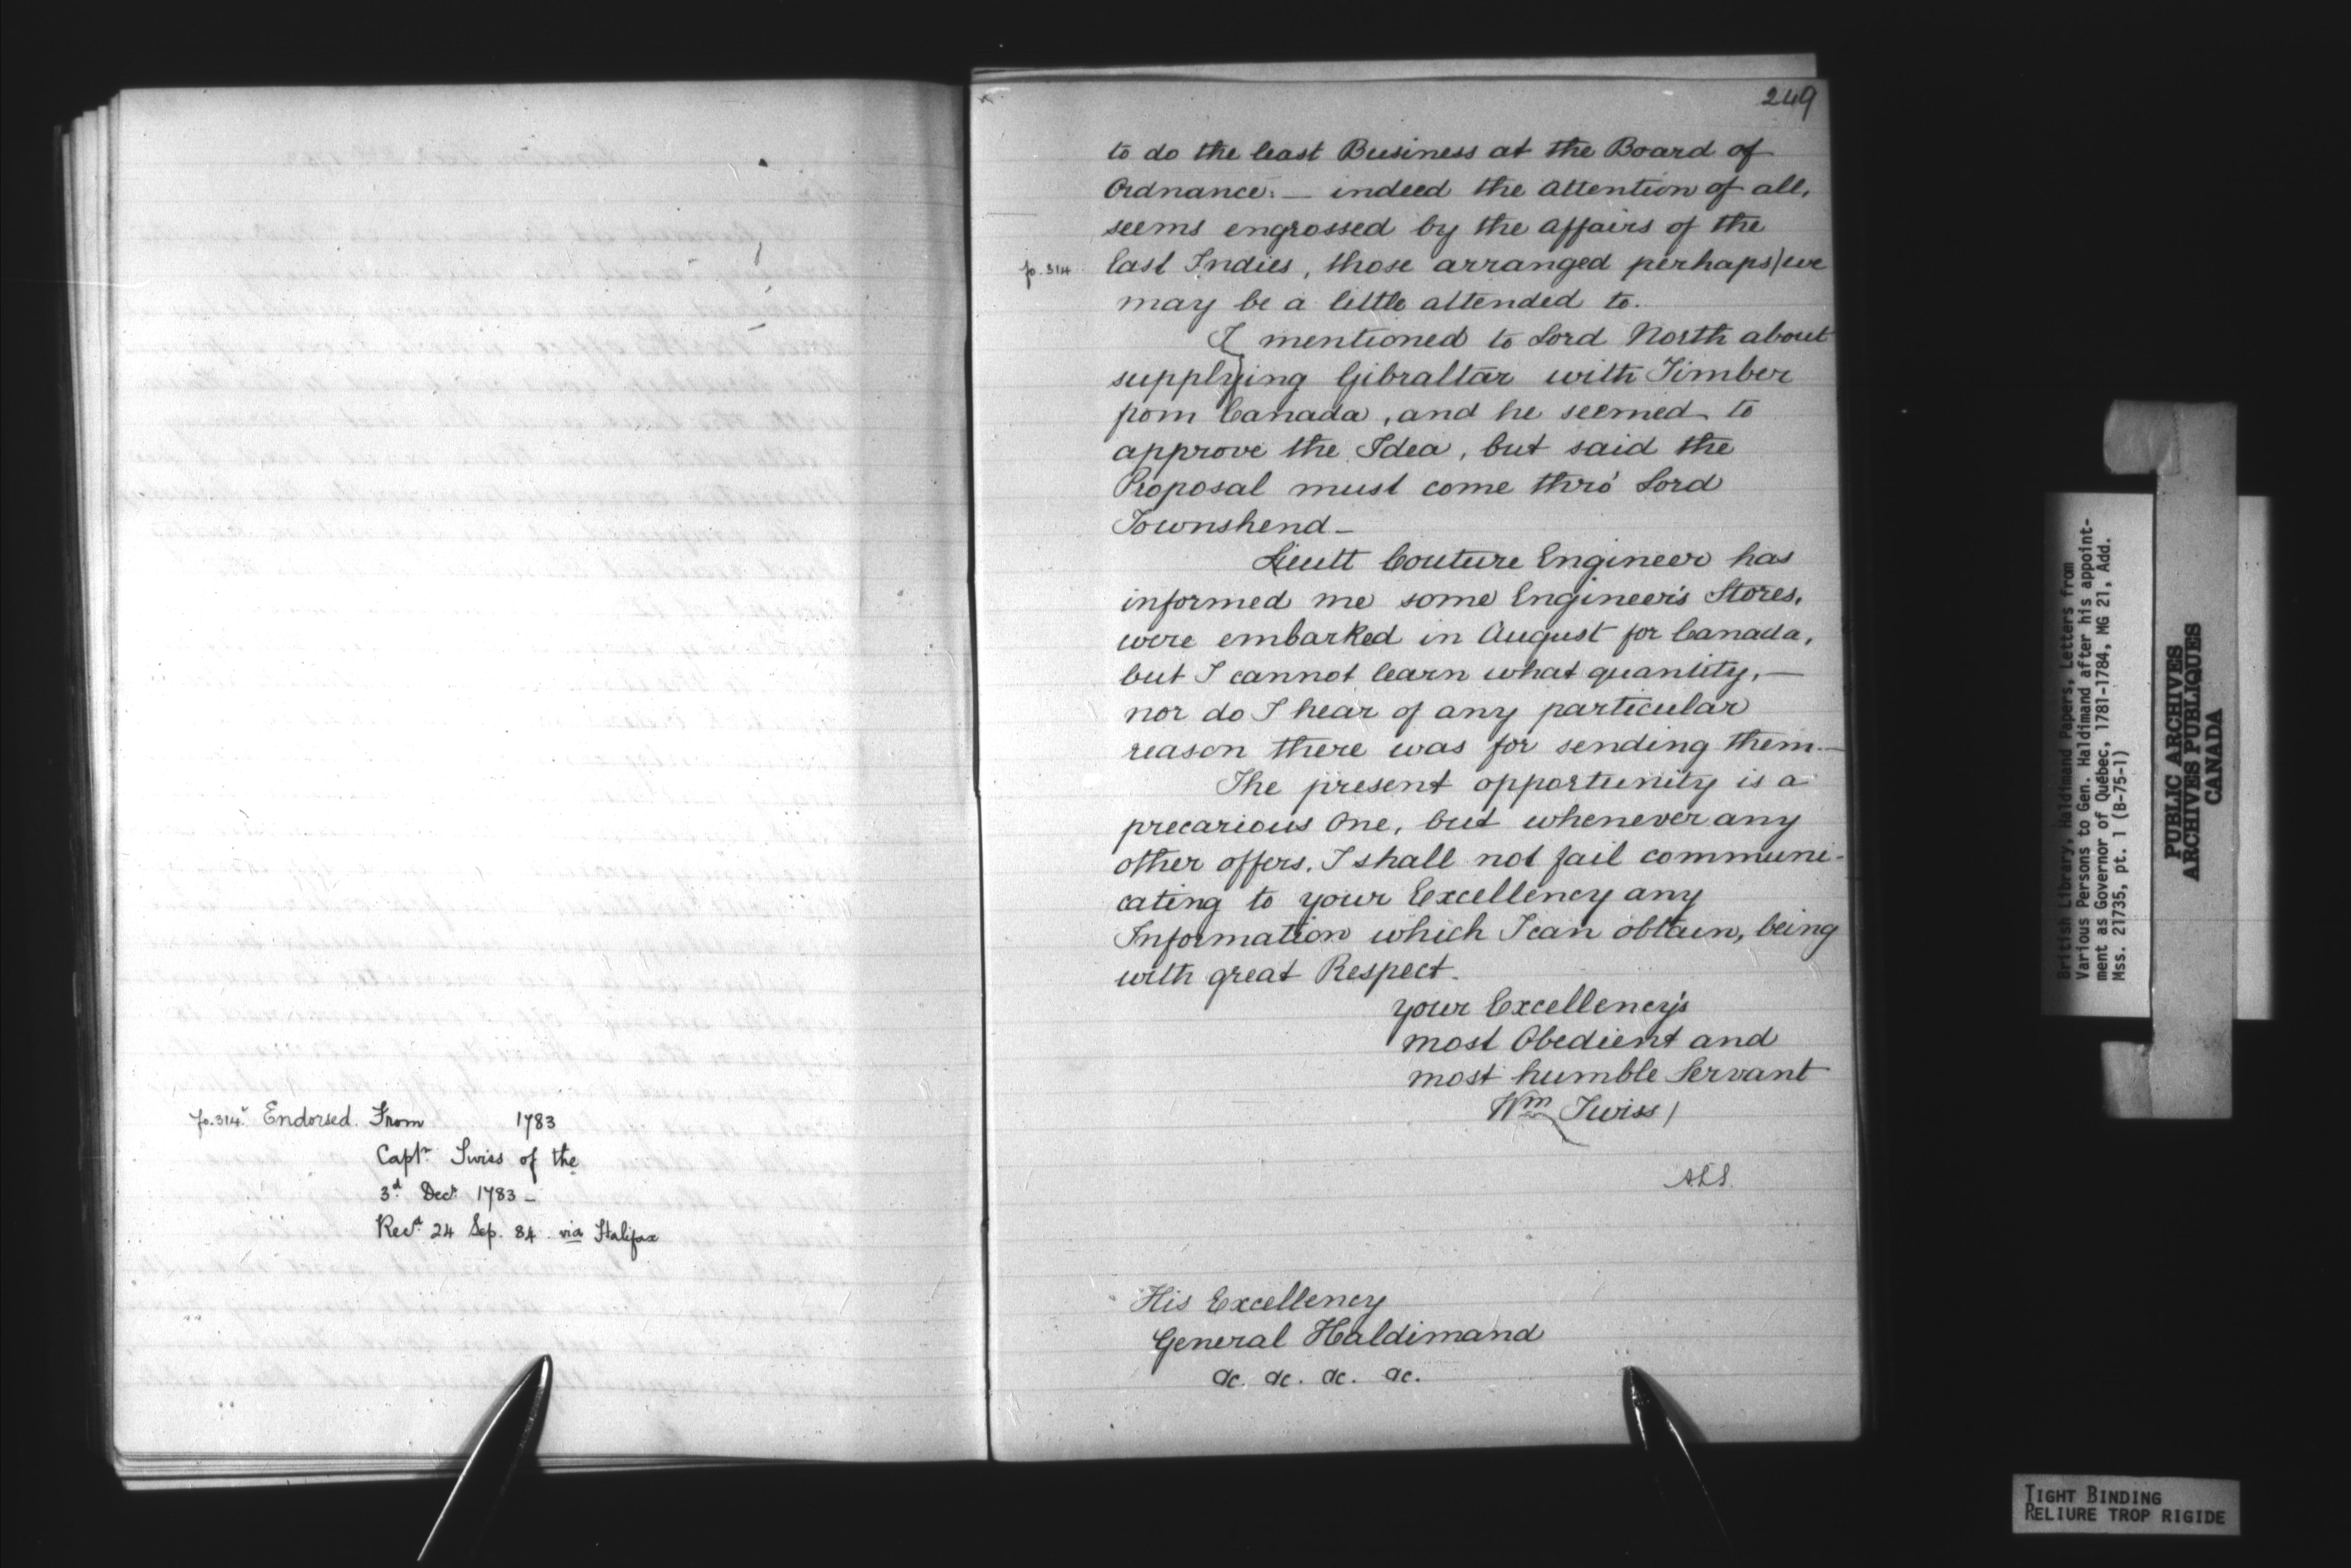 fo. 314v Endorsed. From 1783
Captn Twiss of the
3d Decr 1783 –
Recd 24 Sep. 84 via Halifax
249
to do the least Business at the Board of
Ordnance: — indeed the Attention of all,
seems engrossed by the Affairs of the
fo. 314 East Indies, those arranged perhaps/we
may be a little attended to.
I mentioned to Lord North about
supplying Gibraltar with Timber
from Canada, and he seemed to
approve the Idea, but said the
Proposal must come thro' Lord
Townshend –
Lieutt Couture Engineer has
informed me some Engineer's Stores,
were embarked in August for Canada,
but I cannot learn what quantity, —
nor do I hear of any particular
reason there was for sending them. —
The present opportunity is a
precarious One, but whenever any
other offers, I shall not fail communi-
cating to your Excellency any
Information which I can obtain, being
with great Respect.
your Excellency's
most Obedient and
most humble Servant
Wm Twiss /
A.L.S.
His Excellency
General Haldimand
&c. &c. &c. &c.
British Library, Haldimand Papers, Letters from
Various Persons to Gen. Haldimand after his appoint-
ment as Governor of Québec, 1781-1784, MG 21, Add.
Mss. 21735, pt. 1 (B-75-1)
PUBLIC ARCHIVES
ARCHIVES PUBLIQUES
CANADA
TIGHT BINDING
RELIURE TROP RIGIDE